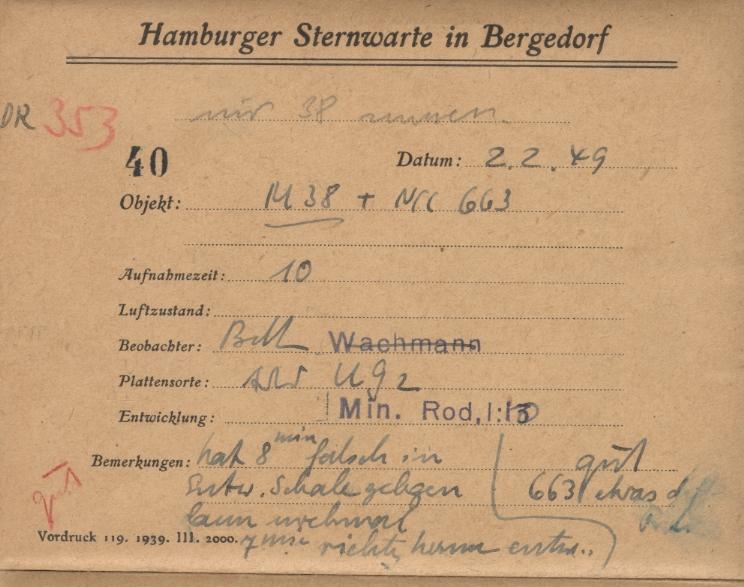 Hamburger Sternwarte in Bergedorf
nur 38
DR 353
40 Datum: 2.2.49
Objekt: M 38 + NGC 663
Aufnahmezeit: 10
Luftzustand:
Beobachter: Wachmann
Plattensorte: U G 2
Entwicklung: Min. Rod, 1:
Bemerkungen: hat 8 min falsch in gut
Entw. Schale gelegen 663 etwas
gut
7 min herum entw..
Vordruck 119. 1939. III. 2000.